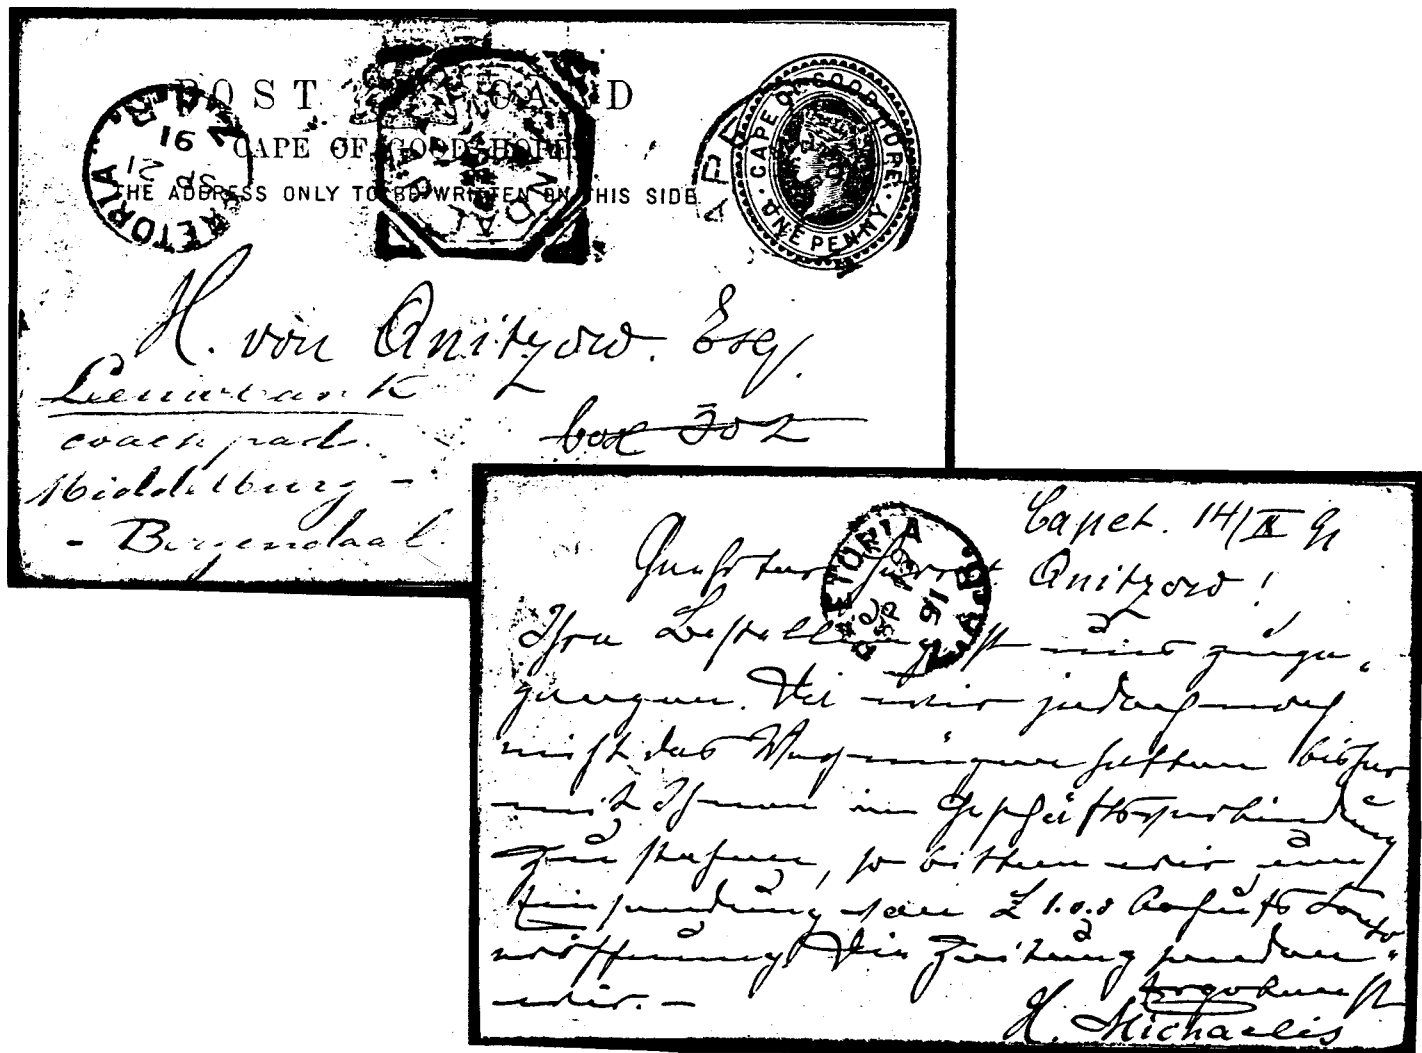 POST CARD
CAPE OF GOOD HOPE
THE ADDRESS ONLY TO BE WRITTEN ON THIS SIDE
CAPE OF GOOD HOPE
ONE PENNY
PRETORIA
Z.A.R.
SP 21
91
H. von Quitzow. Esq.
box 502
Middelburg -
- Bergendaal.
Capet. 14/IX 91
PRETORIA
SP
91
Geehrter Herr v. Quitzow!
Ihre Bestellung ist uns zuge-
gangen. Da wir jedoch noch
nicht das Vergnügen hatten bisher
mit Ihnen in Geschäftsverbindung
zu stehen, so bitten wir um
Einsendung von £ 1.0.0 behufs Conto-
eröffnung. Die Zeitung senden
wir. -
Ergebenst
H. Michaelis